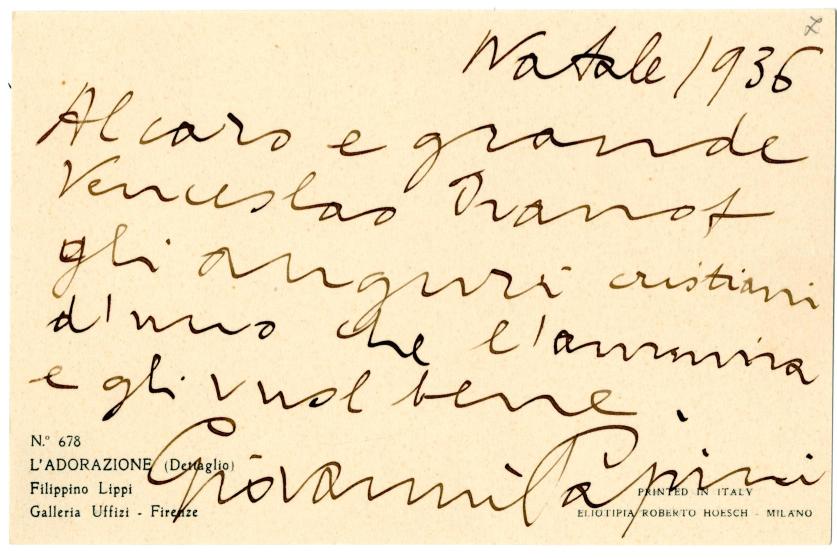 Natale 1936
Al caro e grande
Venceslao Ivanof
gli auguri cristiani
d'uno che l'ammira
e gli vuol bene.
Giovanni Papini
N.º 678
L'ADORAZIONE (Dettaglio)
Filippino Lippi
Galleria Uffizi - Firenze
PRINTED IN ITALY
ELIOTIPIA ROBERTO HOESCH - MILANO